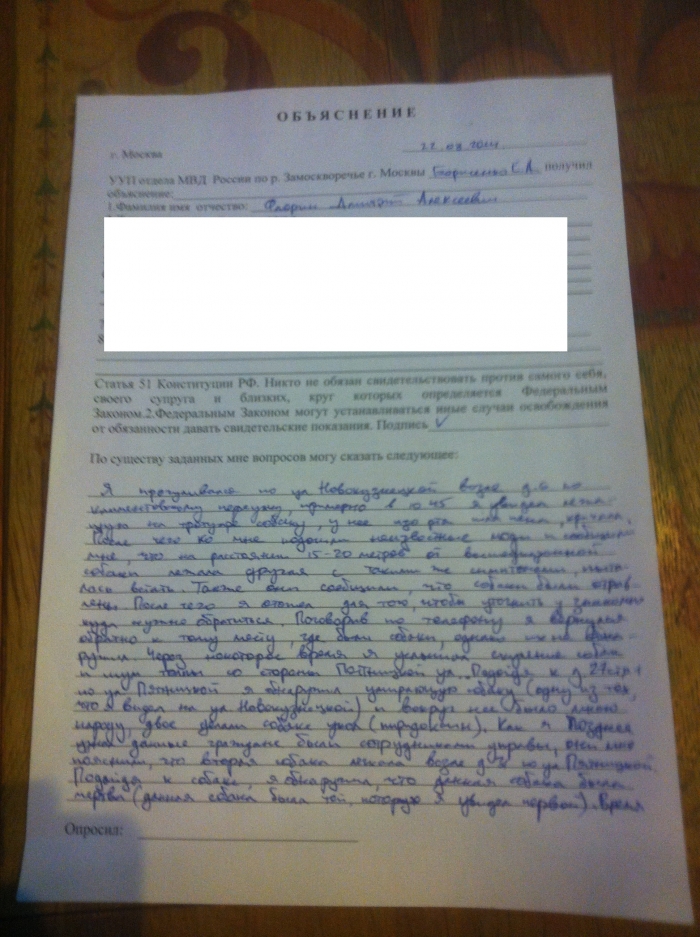 ОБЪЯСНЕНИЕ
г. Москва 22.08.2014
УУП отдела МВД России по р. Замоскворечье г. Москвы С.А. получил
объяснение:
1.Фамилия имя отчество: Алексеевич
8
Статья 51 Конституции РФ. Никто не обязан свидетельствовать против самого себя,
своего супруга и близких, круг которых определяется Федеральным
Законом.2.Федеральным Законом могут устанавливаться иные случаи освобождения
от обязанности давать свидетельские показания. Подпись
По существу заданных мне вопросов могу сказать следующее:
Я прогуливался по ул Новокузнецкой возле д.6 по
климентовскому переулку, примерно в 10 45 я увидел лежа-
щую на тротуаре собаку, у нее изо рта шла пена, кричала,
После чего ко мне подошли неизвестные люди и сообщили
мне, что на расстоянии 15-20 метров от
собаки лежала другая с такими же симптомами, пыта-
лась встать. Также они сообщили, что собаки были отрав-
лены. После чего я отошел для того, чтобы уточнить у знакомых
куда нужно обратиться. Поговорив по телефону я вернулся
обратно к тому месту, где были собаки, однако их не обна-
ружил. Через некоторое время я услышал
и шум толпы со стороны Пятницкой ул. Подойдя к д.
по ул Пятницкой я обнаружил умирающую собаку (одну из тех,
что я видел на ул Новокузнецкой) и вокруг нее было много
народу, двое делали собаке укол (пиридоксин). Как я позднее
узнал данные граждане были сотрудниками управы, они мне
пояснили, что вторая собака лежала возле д. по ул Пятницкой
Подойдя к собаке, я обнаружил, что данная собака была
мертва (данная собака была той, которую я увидел первой). Время
Опросил: